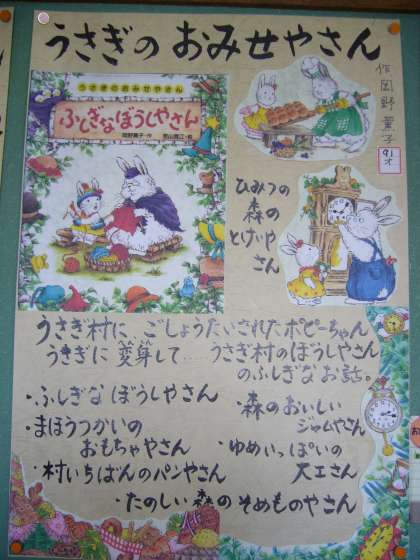 うさぎの おみせやさん
作 岡野 薫子
91
オ
うさぎのおみせやさん
ふしぎなぼうしやさん
岡野薫子・作
ひみつの
森の
とけいや
さん
うさぎ村に、ごしょうたいされたポピーちゃん
うさぎに 変身して……うさぎ村のぼうしやさん
のふしぎなお話。
・ふしぎな ぼうしやさん
・まほうつかいの
おもちゃやさん
・村いちばんのパンやさん
・森のおいしい
ジャムやさん
・ゆめいっぱいの
大工さん
・たのしい森の そめものやさん